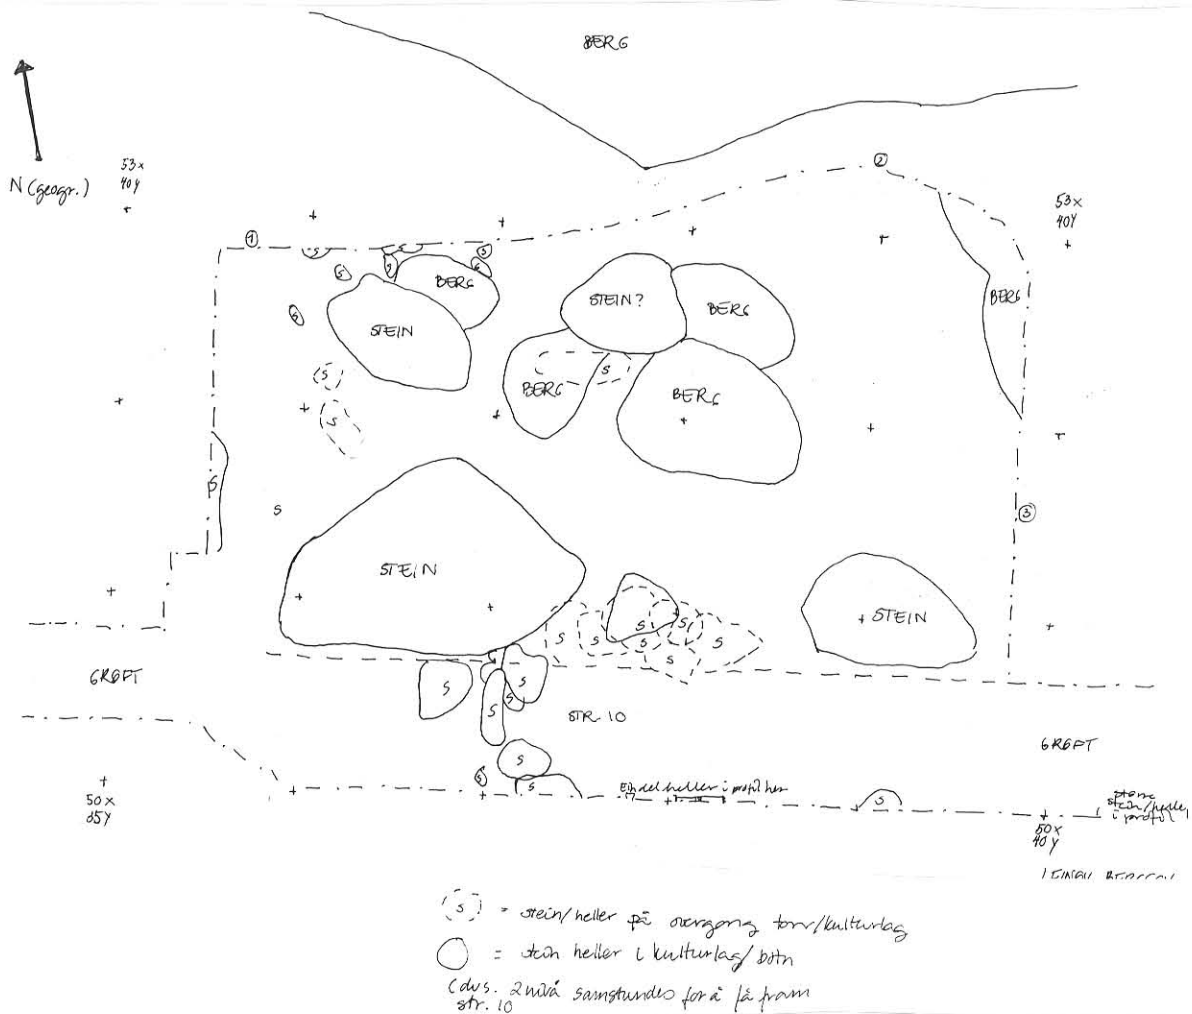 BERG
N (geogr.)
53x
40y
53x
40y
1
2
S
S
S
S
S
S
S
BERG
STEIN
STEIN?
BERG
BERG
BERG
BERG
S
S
S
S
S
3
STEIN
STEIN
S
S
S
S
S
S
S
GRØFT
S
S
S
S
STR. 10
GRØFT
S
S
S
S
50x
35y
En del heller i profil her
større
stein/heller
i profil
50x
40y
S = stein/heller på overgang torv/kulturlag
= stein heller i kulturlag/botn
(dvs. 2 nivå samstundes for å få fram
str. 10